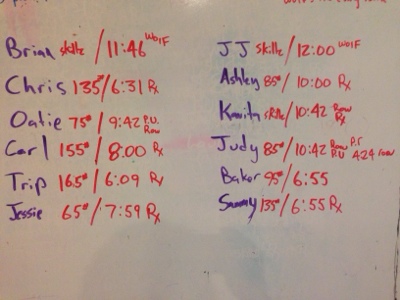 Brian skillz / 11:46 WOLF
Chris 135# / 6:31 Rx
Oatie 75# / 9:42 P.U. Row
Carl 155# / 8:00 Rx
Trip 165# / 6:09 Rx
Jessie 65# / 7:59 Rx
JJ skillz / 12:00 WOLF
Ashley 85# / 10:00 Rx
skillz / 10:42 Row Rx
Judy 85# / 10:42 Row P.U P.r 4:24 row
Baker 95# / 6:55
Sammy 135# / 6:55 Rx